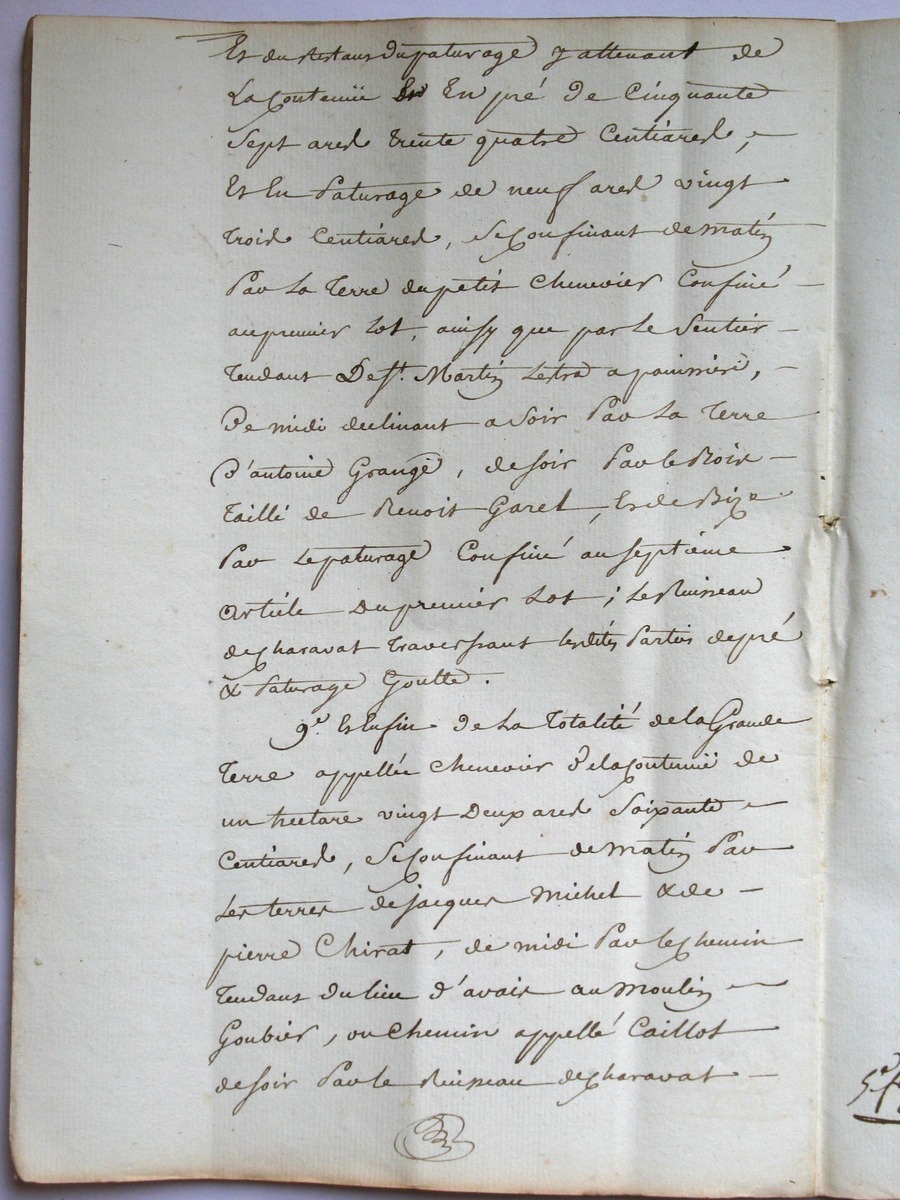 Et du restant du paturage y attenant de
La Contenüe En pré de Cinquante
Sept ares trente quatre Centiares, –
Et En Paturage de neuf ares vingt
trois Centiares, se Confinant de matin
Par La Terre du petit Chenevier Confiné –
au premier Lot, ainsy que par Le Sentier –
tendant De St. Martin Lestra a , –
De midi declinant a Soir Par La Terre
d'antoine Grange, de soir Par le Bois –
taillé de Benoit Garel, Et de Bize
Par Le paturage Confiné au Septième
article du premier Lot ; Le Ruisseau
de Charavat traversant lesdites Parties de pré
& Paturage Goutte.
9.° Et Enfin De La Totalité de la Grande
Terre appellée Chenevier De la Contenüe de
un hectare vingt Deux ares Soixante –
Centiares, se Confinant de matin Par
Les terres de jacques Michel & de –
pierre Chirat, de midi Par le Chemin
tendant du lieu d'avais au Moulin –
Goubier, ou Chemin appellé Caillot
de soir Par le Ruisseau de Charavat –